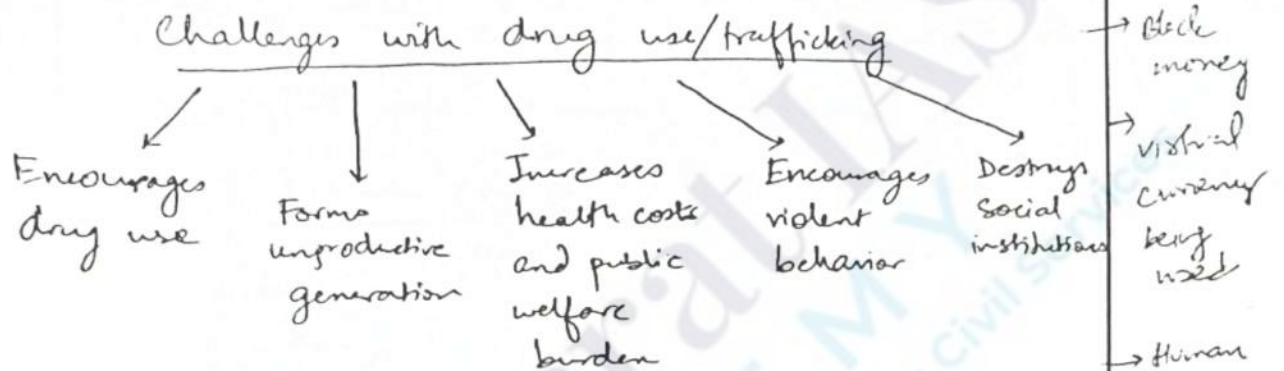 Challenges with drug use/trafficking
Encourages
drug use
Forms
unproductive
generation
Increases
health costs
and public
welfare
burden
Encourages
violent
behavior
Destroys
social
institutions
Black
money
virtual
currency
being
used
Human
Civil Services